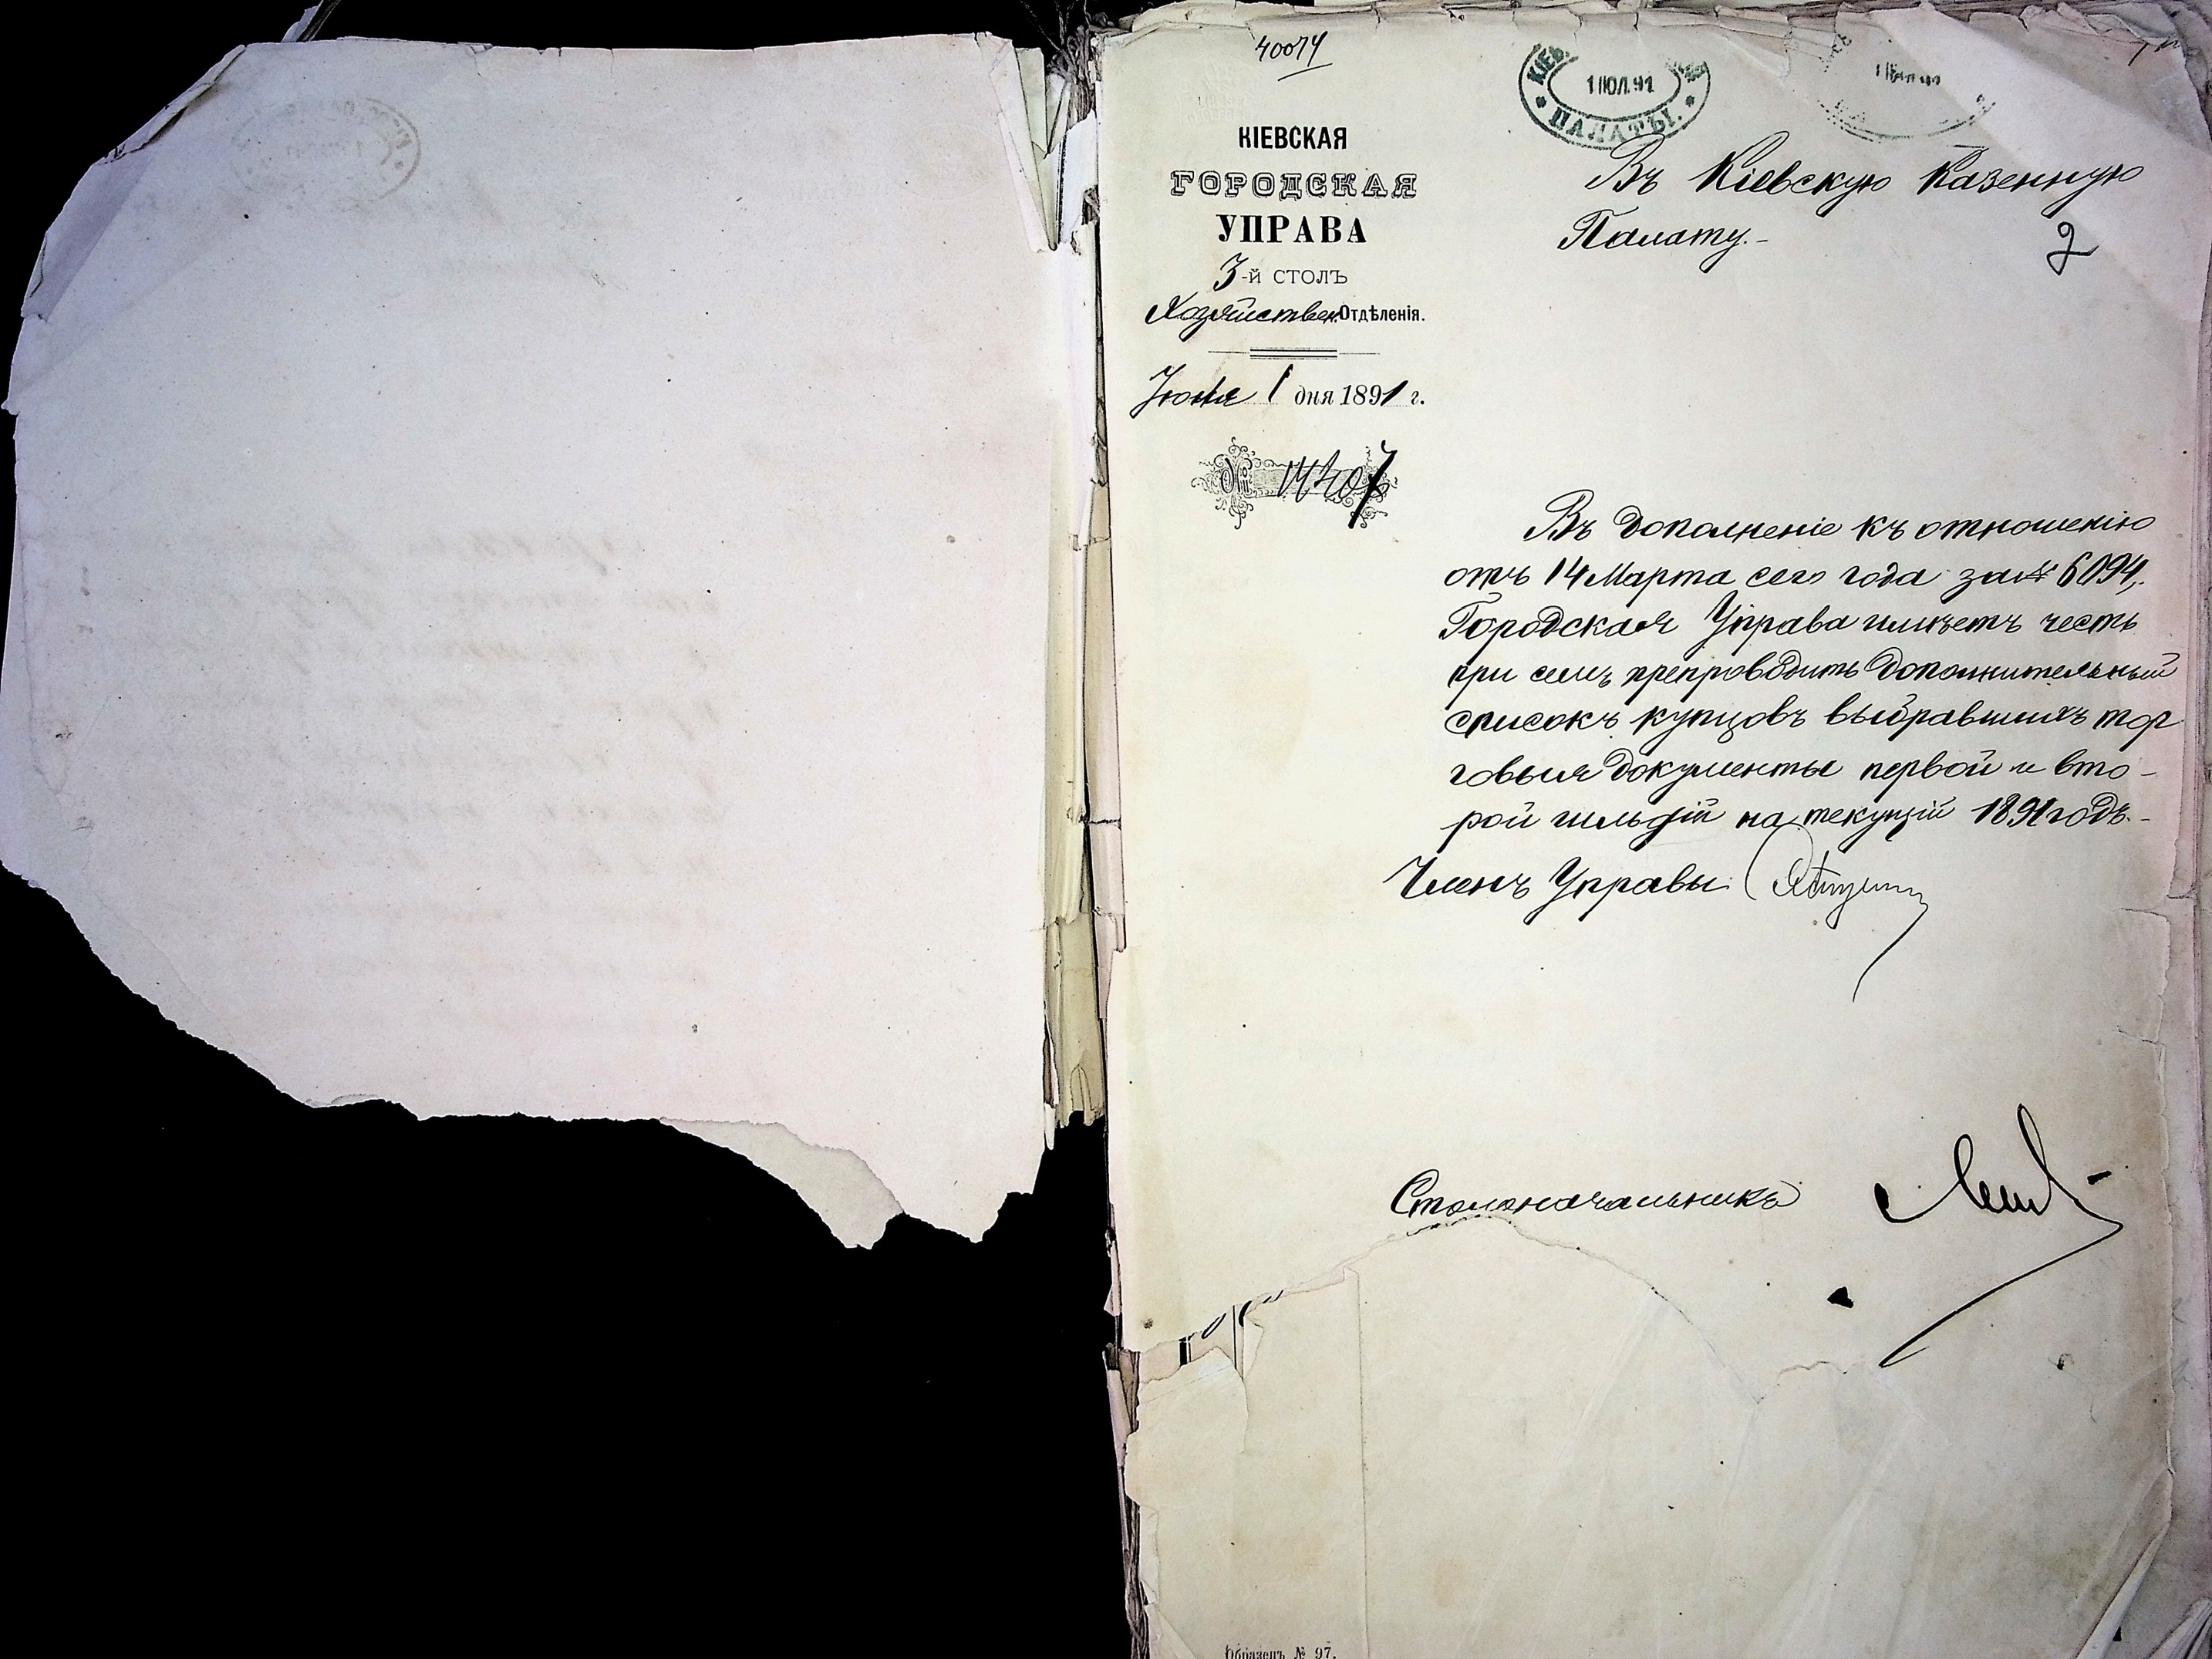 40074
КІЕВ
1 ІЮЛ. 91
ПАЛАТЫ.
КІЕВСКАЯ
ГОРОДСКАЯ
УПРАВА
3-й СТОЛЪ
Хозяйствен. Отдѣленія.
1 дня 1891 г.
№
Въ Кіевскую Казенную
Палату.-
2
Въ дополненіе къ отношенію
отъ 14 Марта сего года за № 6094,
Городская Управа имѣетъ честь
при семъ препроводить дополнительный
списокъ купцовъ выбравшихъ тор
говыя документы первой и вто-
рой гильдій на текущій 1891 годъ.-
Членъ Управы
Столоначальникъ
Образецъ № 97.